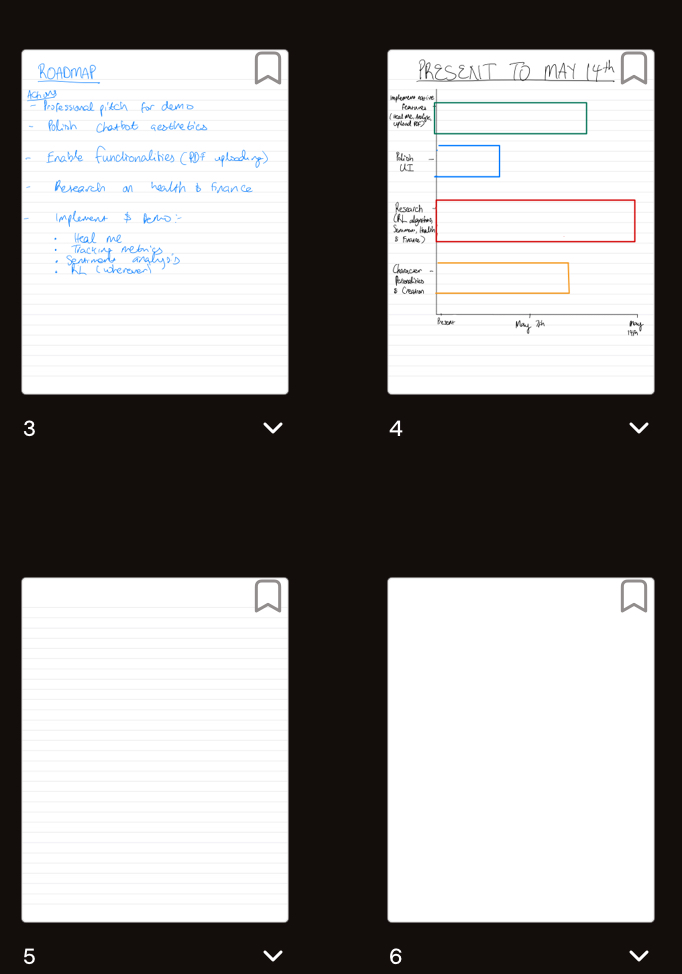 ROADMAP
Actions
- Professional pitch for demo
- Polish Chatbot aesthetics
- Enable functionalities (PDF uploading)
- Research on health & Finance
- Implement & Demo:-
• Heal me
• Tracking metrics
• Sentiment analysis
• RL (wherever)
3
PRESENT TO MAY 14th
Implement
Features
(Heal Me, Analyze,
upload PDF)
Polish
UI
Research
(RL algorithms,
Health
& Finance)
Character
Personalities
& Creation
Present
May 7th
May
14th
4
5
6